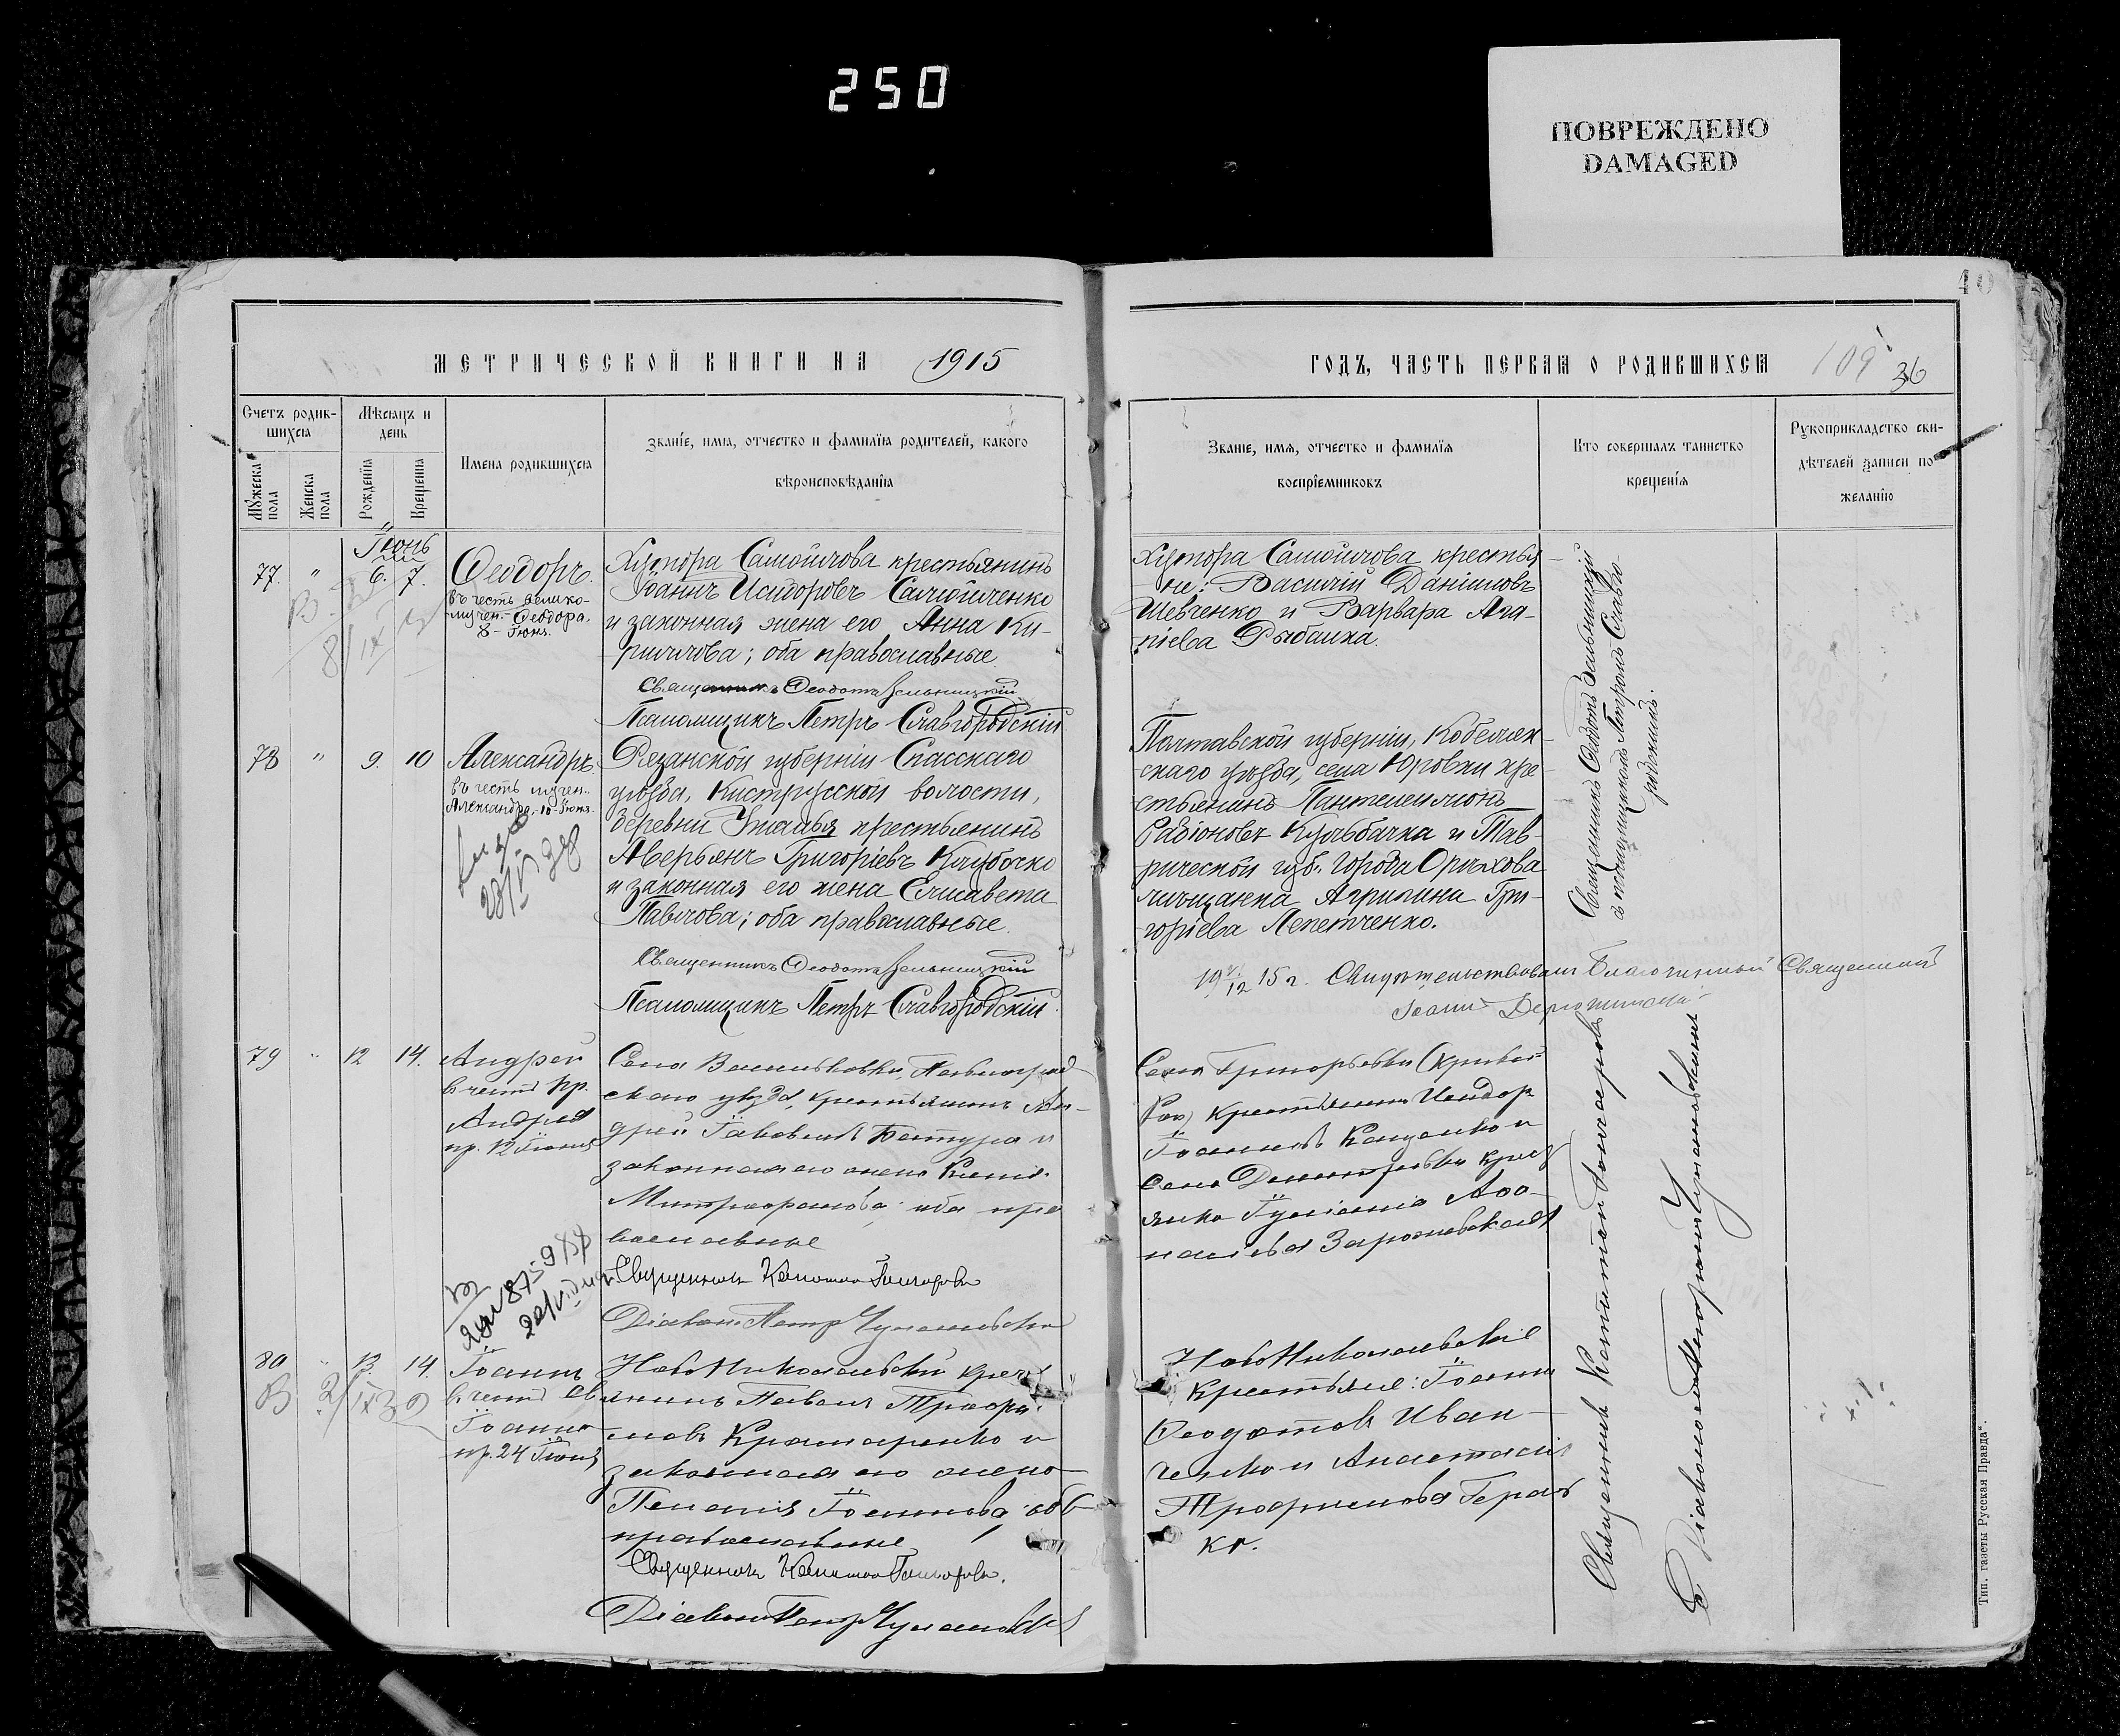 250
ПОВРЕЖДЕНО
DAMAGED
40
МЕТРИЧЕСКОЙ КНИГИ НА 1915
ГОДЪ, ЧАСТЬ ПЕРВАЯ О РОДИВШИХСЯ
109
36
Счетъ родив-
шихся
Мѣсяцъ и
день
Мужеска пола
Женска пола
Рожденія
Крещенія
Имена родившихся
Званіе, имя, отчество и фамилія родителей, какого
вѣроисповѣданія
Званіе, имя, отчество и фамилія
воспріемниковъ
Кто совершалъ таинство
крещенія
Рукоприкладство сви-
дѣтелей записи по
желанію
Іюнь
77. " 6. 7.
Ѳеодоръ.
въ честь велико-
мучен. Ѳеодора,
8 - Іюня.
Хутора Самойлова крестьянинъ
Іоаннъ Исидоровъ Самойленко
и законная жена его Анна Ки-
риллова; оба православные
Священникъ Ѳеодотъ Зельницкій
Псаломщикъ Петръ Славгородскій
Хутора Самойлова крестья-
не: Василій Даніиловъ
Шевченко и Варвара Ага-
піева Рыбалка.
Священникъ Ѳеодотъ Зельницкій
съ псаломщикомъ Петромъ Славго-
родскимъ.
78 " 9. 10
Александръ.
въ честь мучен.
Александра, 10 - Іюня.
28/V 38
Рязанской губерніи Спасскаго
уѣзда, Киструсской волости,
деревни Ужалья крестьянинъ
Аверьянъ Григоріевъ Клубочко
и законная его жена Елисавета
Павлова; оба православные.
Священникъ Ѳеодотъ Зельницкій
Псаломщикъ Петръ Славгородскій
Полтавской губерніи, Кобеляк-
скаго уѣзда, села Юровки кре-
стьянинъ Пантелеимонъ
Радіоновъ Кульбачка и Тав-
рической губ. города Орѣхова
мѣщанка Агрипина Гри-
горіева Лепетченко.
15 г. Свидѣтельствовалъ Благочинный Священникъ
Іоаннъ
79 " 12 14.
Андрей
въ честь пр.
Андрея
пр. 12 Іюня
Села Васильковки, Павлоград-
скаго уѣзда, крестьянинъ Ан-
дрей Іаковлевъ и
законная его жена
Митрофанова; оба пра
вославные
Священникъ Капитонъ Гончаровъ
Діаконъ Петръ
Села Григорьевки (Кривой
Рогъ) крестьянинъ Исидоръ
Іоанновъ Кащенко и
села Дмитровки крест
янка Іуліанія Аѳа-
насіева
80 " 13. 14.
Іоаннъ
въ честь св
Іоанна
пр. 24 Іюня
НовоНиколаевскій крест
янинъ Павелъ Трофи-
мовъ Крамаренко и
законная его жена
Пелагія Іоаннова; оба
православные
Священникъ Капитонъ Гончаровъ.
Діаконъ Петръ
НовоНиколаевскіе
крестьяне: Іоаннъ
Ѳеодотовъ Иван-
ченко и Анастасія
Трофимова
Священникъ Капитонъ Гончаровъ
Съ Діакономъ Петромъ
Тип. газеты Русская Правда".